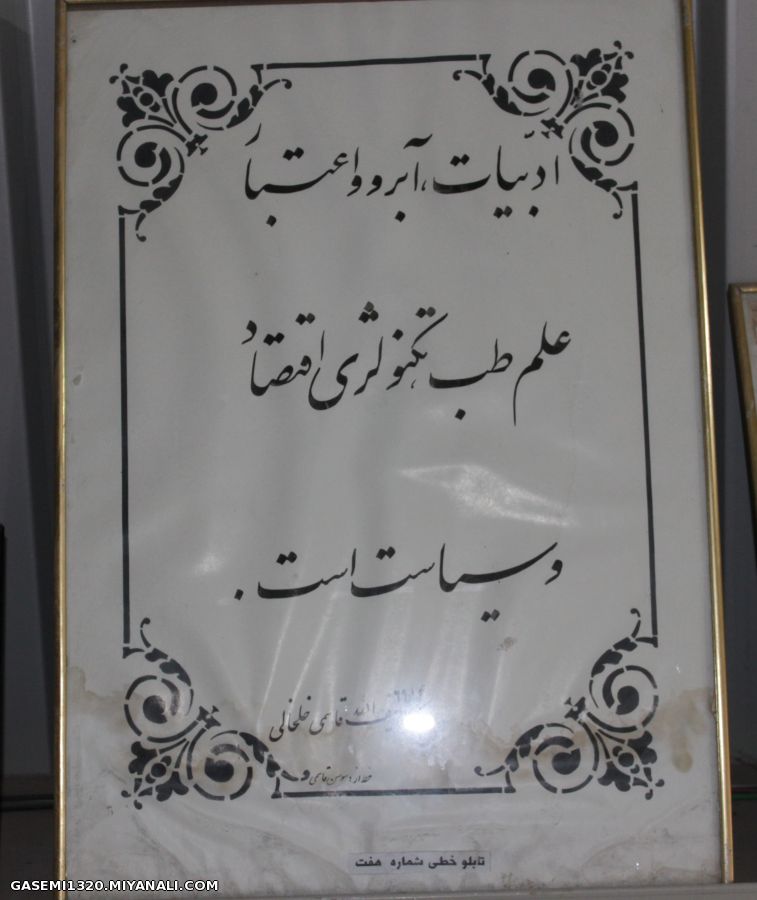 ادبیّات، آبرو و اعتبار
علم طب، تکنولژی اقتصاد
و سیاست است.
الله قاسمی خلخالی
خط از: سوسن قاسمی
تابلو خطی شماره هفت
GASEMI1320.MIYANALI.COM